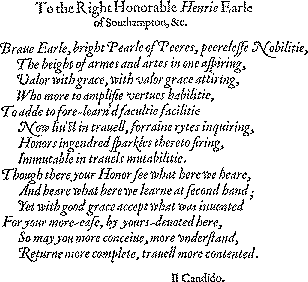 To the Right Honorable Henrie Earle
of Southampton, &c.
Braue Earle, bright Pearle of Peeres, peerelesse Nobilitie,
The height of armes and artes in one aspiring,
Valor with grace, with valor grace attiring,
Who more to amplifie vertues habilitie,
To adde to fore-learn'd facultie facilitie
Now liu'st in trauell, forraine rytes inquiring,
Honors ingendred sparkles thereto firing,
Immutable in trauels mutabilitie.
Though there your Honor see what here we heare,
And heare what here we learne at second hand;
Yet with good grace accept what was inuented
For your more-ease, by yours-deuoted here,
So may you more conceiue, more vnderstand,
Returne more complete, trauell more contented.
Il Candido.